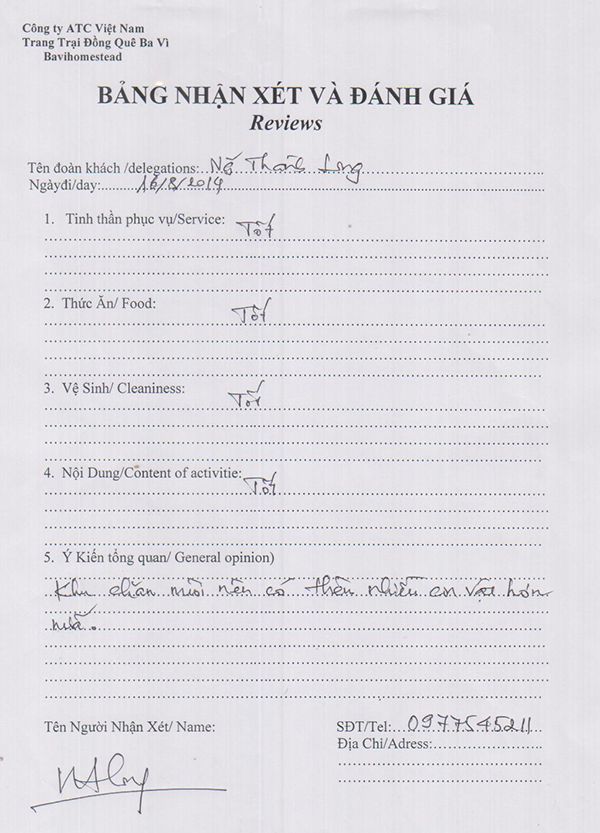 Công ty ATC Việt Nam
Trang Trại Đồng Quê Ba Vì
Bavihomestead
BẢNG NHẬN XÉT VÀ ĐÁNH GIÁ
Reviews
Tên đoàn khách /delegations: Thành Long
Ngàyđi/day: 16/8/2019
1. Tinh thần phục vụ/Service: Tốt
2. Thức Ăn/ Food: Tốt
3. Vệ Sinh/ Cleaniness: Tốt
4. Nội Dung/Content of activitie: Tốt
5. Ý Kiến tổng quan/ General opinion)
Khu chăn nuôi nên có thêm nhiều con vật hơn
nữa.
Tên Người Nhận Xét/ Name:
SĐT/Tel: 0977545211
Địa Chỉ/Adress: